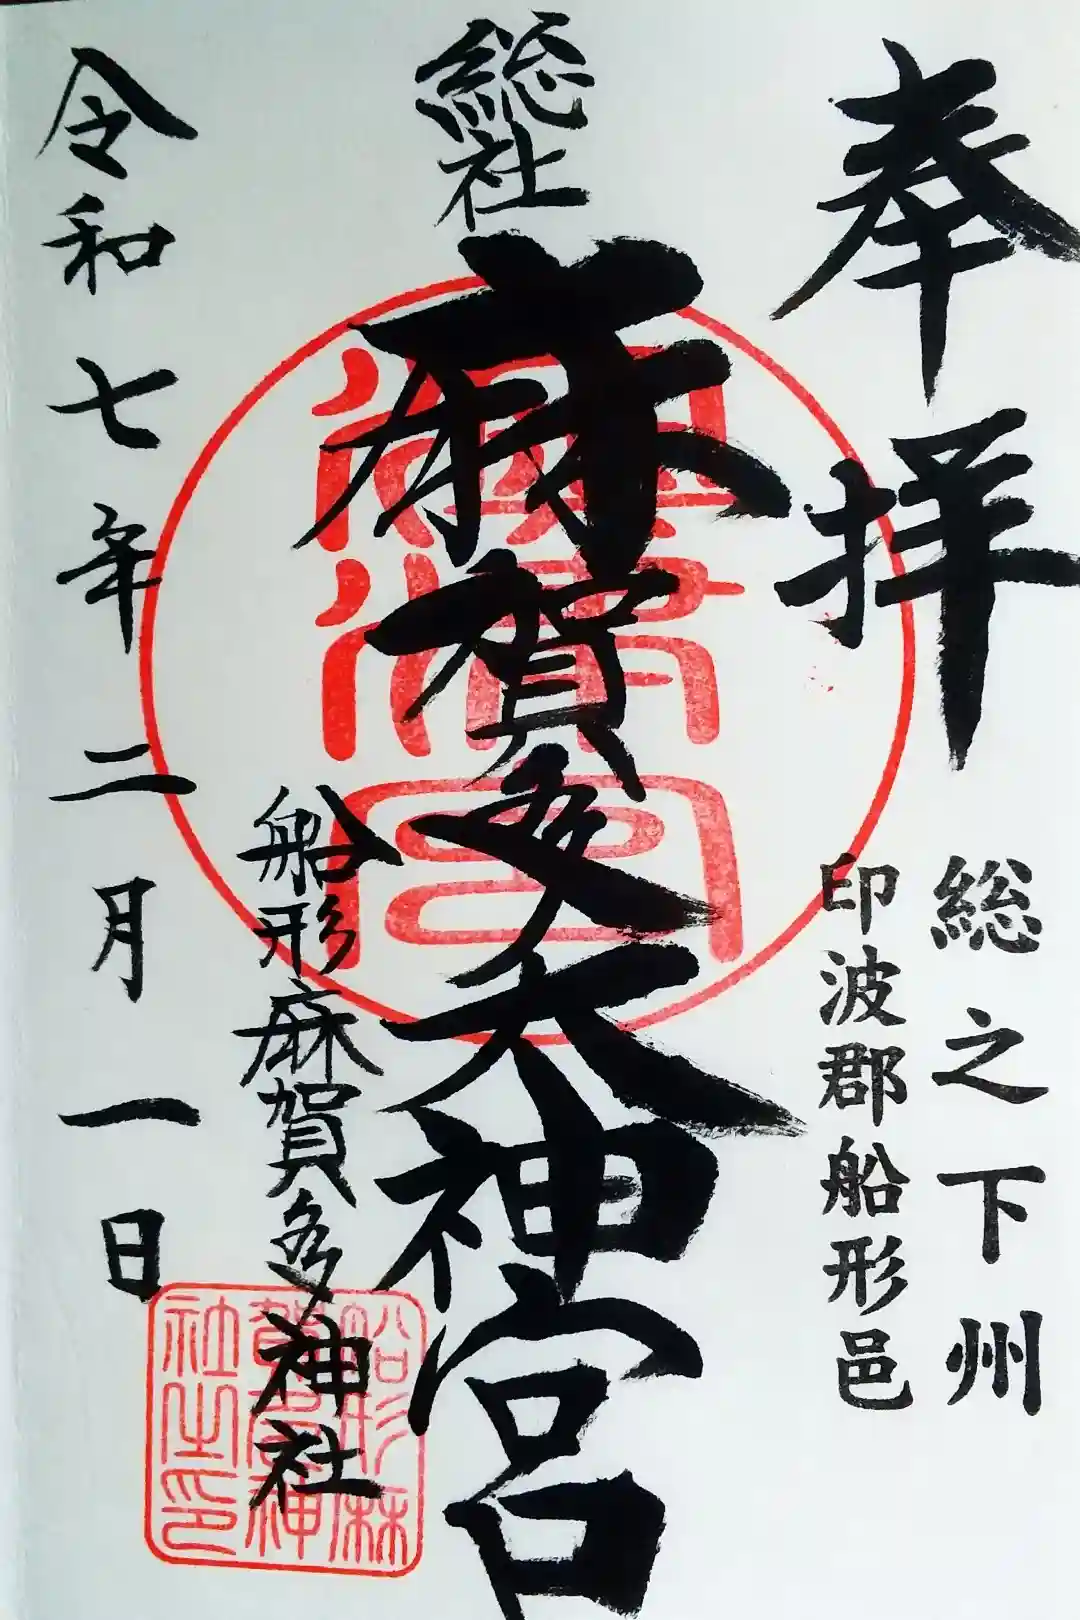 奉拝
総之下州
印波郡船形邑
総社
麻賀多大神宮
船形麻賀多神社
令和七年二月一日
船形麻
賀多神
社之印